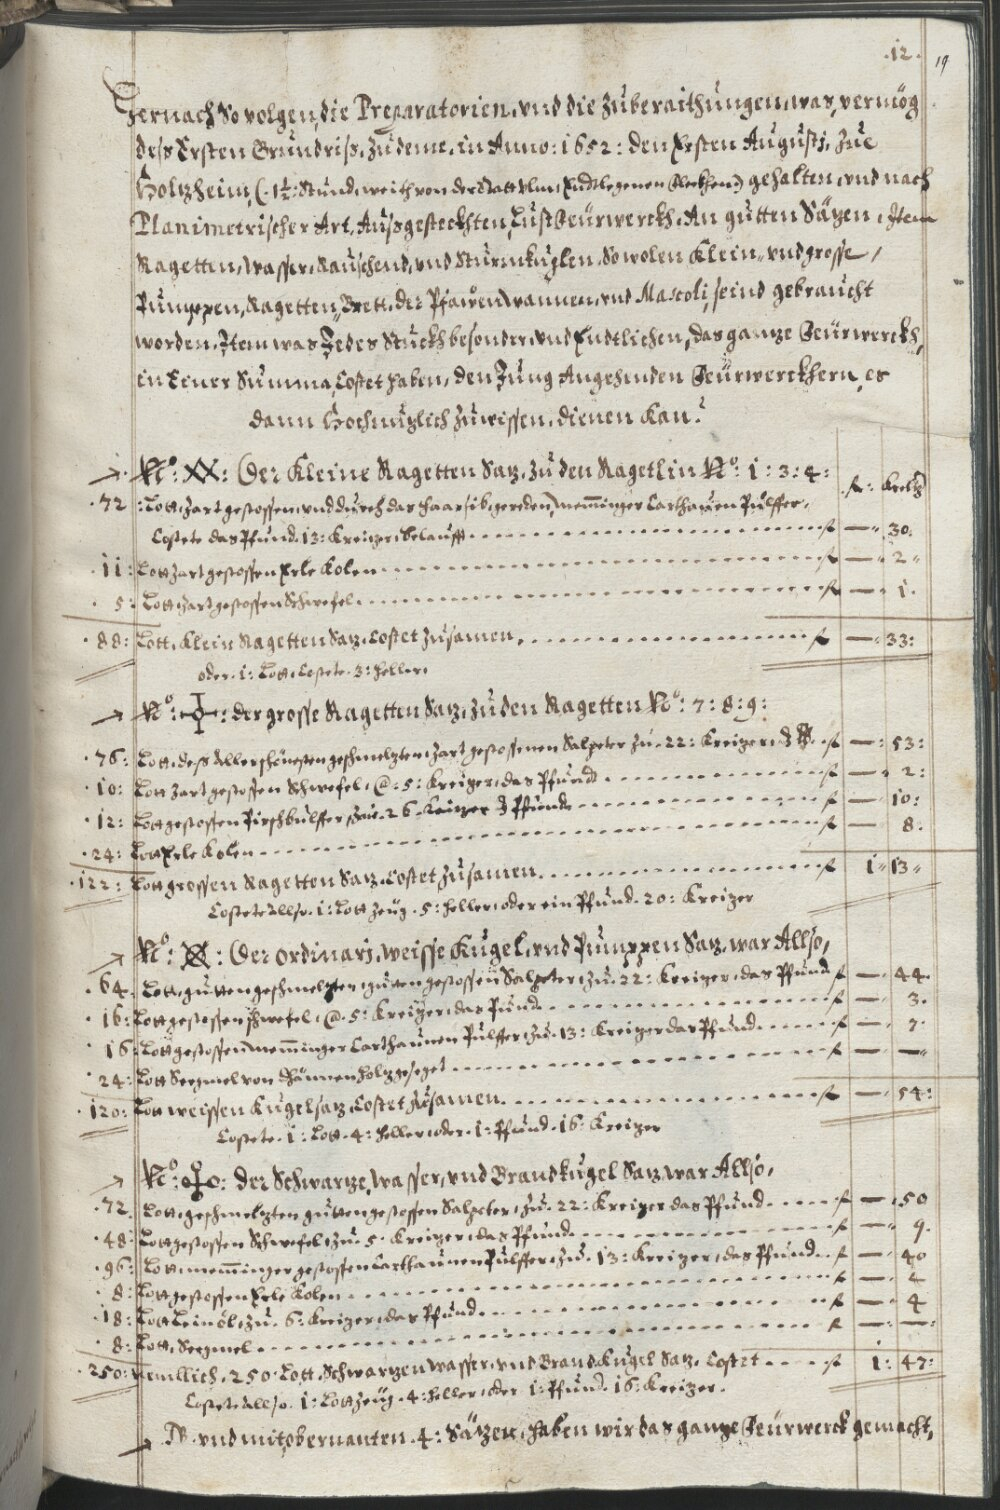 .12. 19
Hernach So volgen, die Preparatorien, vnd die Zúberaithúngen, was, vermög
deß Ersten Grúndriß, zú deme, in Anno: 1652: den Ersten Augústj, Zúe
Holtzheim, (. 1½: Stúnd, weith von der Statt Vlm, Endtlegenen Fleckhen.) gehalten, vnd nach
Planimetrischer Art, Außgesteckhten, Lúst Feürwerckh, An gútten Sätzen, Item
Ragetten, Wasser, Raúschend, vnd Stúrmkúglen, So wolen Klein, vnd grosse,
Púmppen, Ragetten, Brett, der Pfawen, wannen, vnd Mascoli, seind gebraúcht
worden, Item was Jedes Stúckh besonder, vnd Endtlichen, das gantze Feürwerckh,
in Einer Súmma, Costet haben, den Júng Angehenden Feürwerckhern, es
dann Hochnútzlich Zú wissen, dienen Kan.
No: XX: Der Kleine Ragetten Satz, zú den Ragetlin No: 1: 3: 4:
fl: Kreitz
.72: Lott, zart gestossen, vnd dúrch das Haarsib, gereden, memminger Carthaúen Púlffer,
Costete das Pfúnd. 13: Kreizer, belaufft fl — 30:
.11: Lott zart gestossen Erle Kolen fl — 2
.5: Lott, zart gestossen Schwefel fl — 1.
.88: Lott, Klein Ragetten Satz, Costet zúsamen, fl — 33:
oder. 1: Lott, Costete. 3: Heller.
No: der grosse Ragetten Satz, zú den Ragetten No: 7: 8: 9:
.76: Lott, deß Allerschönesten geschmeltzten, zart gestossenen Salpeter zú. 22: Kreizer, fl — 53:
.10: Lott zart gestossen Schwefel, @: 5: Kreizer, das Pfúnd fl — 2:
.12: Lott gestossen Pirschbúlffer, zúe. 26 Kreizer Pfúnd fl — 10:
.24: Lott Erle Kolen fl — 8.
.122: Lott grossen Ragetten Satz. Costet zúsamen. fl 1 13
Costete Allso. 1: Lott Zeúg. 5: Heller, oder ein Pfúnd. 20: Kreizer
No: Der ordinarj, weisse Kúgel, vnd Púmppen Satz, war Allso,
.64. Lott, gútten geschmeltzten, gúten gestossen Salpeter, zú. 22: Kreizer, das Pfúnd fl — 44.
.16: Lott gestossen Schwefel, @. 5: Kreizer, das Púnd fl — 3.
.16: Lott gestossen, memminger Carthaúnen Púlffer, zú. 13: Kreizer das Pfúnd fl — 7.
.24: Lott Seegmel von dännen holtz geseget fl — —
.120: Lott weissen Kúgel satz. Costet zúsamen. fl — 54:
Costete. 1: Lott. 4: Heller, oder. 1: Pfúnd. 16: Kreizer
No: der Schwartze, Wasser, vnd Brandkúgel Satz war Allso,
.72. Lott, geschmeltzten gútten gestossen Salpeter, zú. 22: Kreizer das Pfúnd fl — 50
.48: Lott gestossen Schwefel, zú. 5. Kreizer, das Pfúnd fl — 9.
.96: Lott, memminger gestossen Carthaúnen Púlffer, zú. 13: Kreizer, das Pfúnd. fl — 40
.8: Lott gestossen Erle Kolen fl — 4
.18: Lott Leinöl, zú. 6: Kreizer, das Pfúnd fl — 4
.8: Lott, Seegmel fl — —
.250: Nemllich. 250. Lott, Schwartzen Wasser, vnd Brand Kúgel Satz, Costet fl 1: 47:
Costete Allso. 1: Lott Zeúg. 4: Heller, oder 1: Pfúnd. 16: Kreizer.
vnd mit obernanten. 4: Sätzen, haben wir das gantze Feürwerck gemacht,